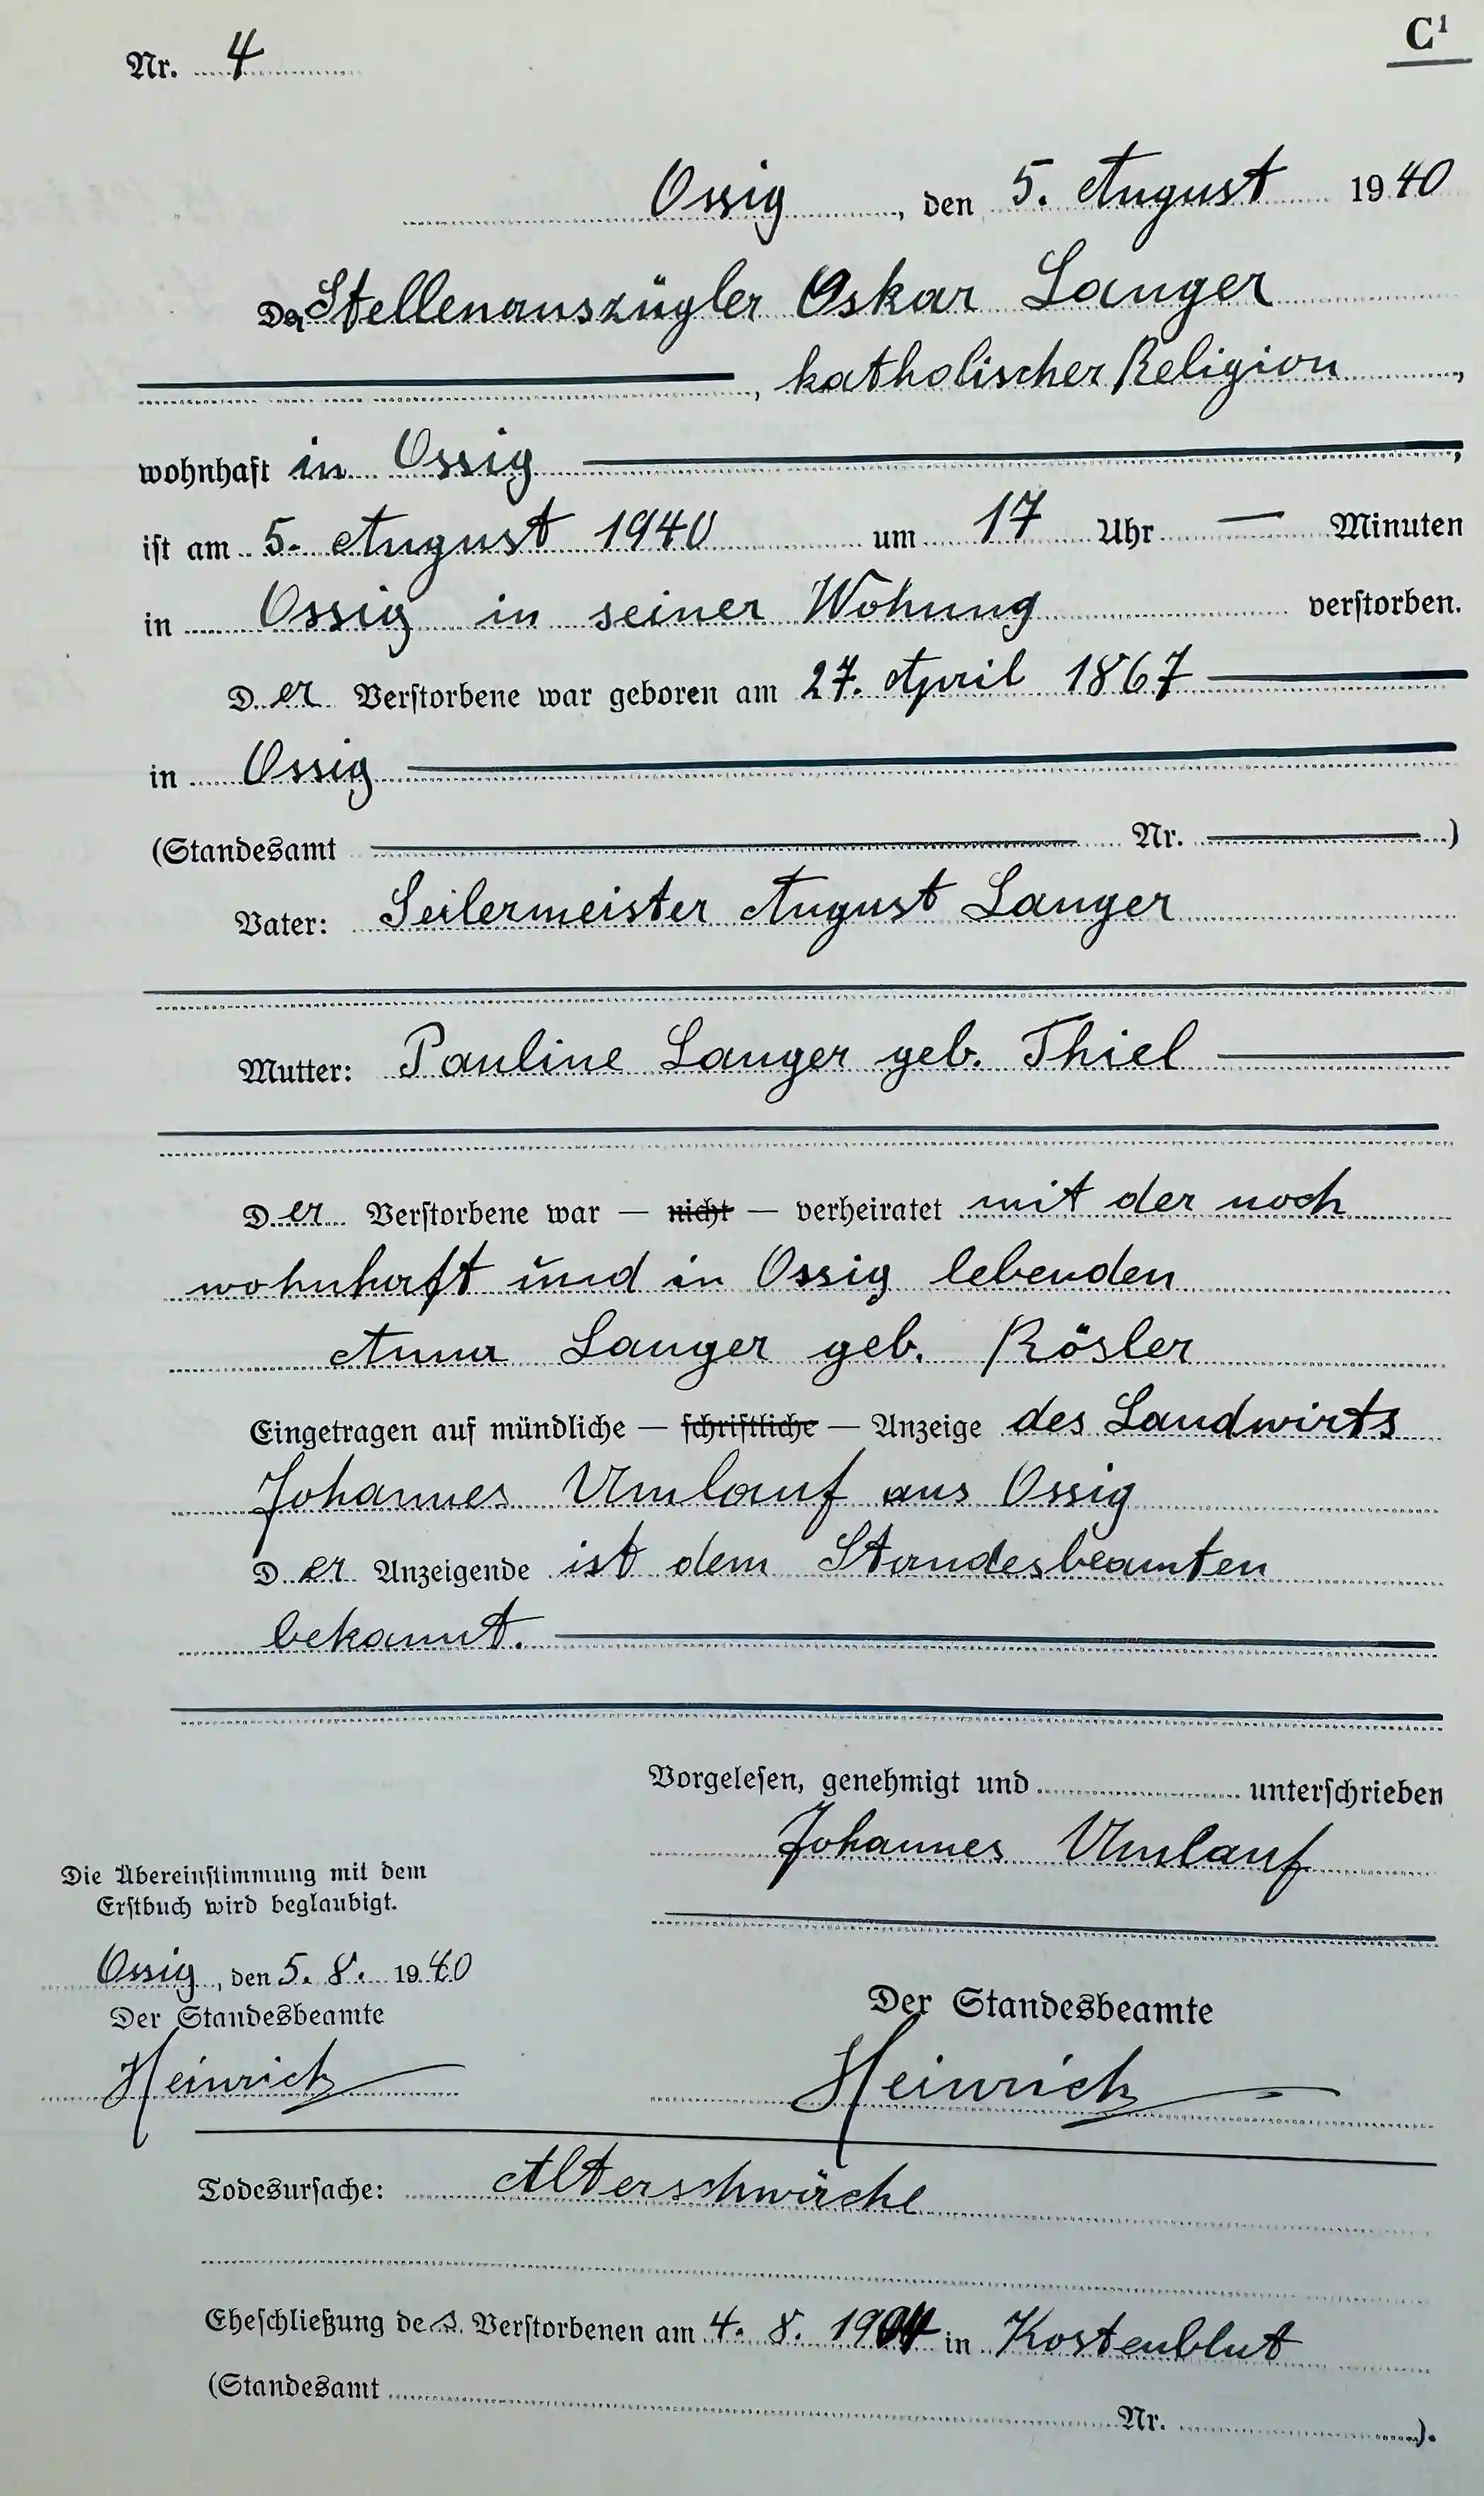 C¹
Nr. 4
Ossig, den 5. August 1940
Der Stellenauszügler Oskar Langer
, katholischer Religion,
wohnhaft in Ossig,
ist am 5. August 1940 um 17 Uhr — Minuten
in Ossig in seiner Wohnung verstorben.
Der Verstorbene war geboren am 27. April 1867
in Ossig
(Standesamt Nr. )
Vater: Seilermeister August Langer
Mutter: Pauline Langer geb. Thiel
Der Verstorbene war — nicht — verheiratet mit der noch
wohnhaft und in Ossig lebenden
Anna Langer geb. Rösler
Eingetragen auf mündliche — schriftliche — Anzeige des Landwirts
Johannes Umlauf aus Ossig
Der Anzeigende ist dem Standesbeamten
bekannt.
Vorgelesen, genehmigt und unterschrieben
Johannes Umlauf
Die Übereinstimmung mit dem
Erstbuch wird beglaubigt.
Ossig, den 5. 8. 1940
Der Standesbeamte
Heinrich
Der Standesbeamte
Heinrich
Todesursache: Alterschwäche
Eheschließung des Verstorbenen am 4. 8. in Kostenblut
(Standesamt Nr. ).